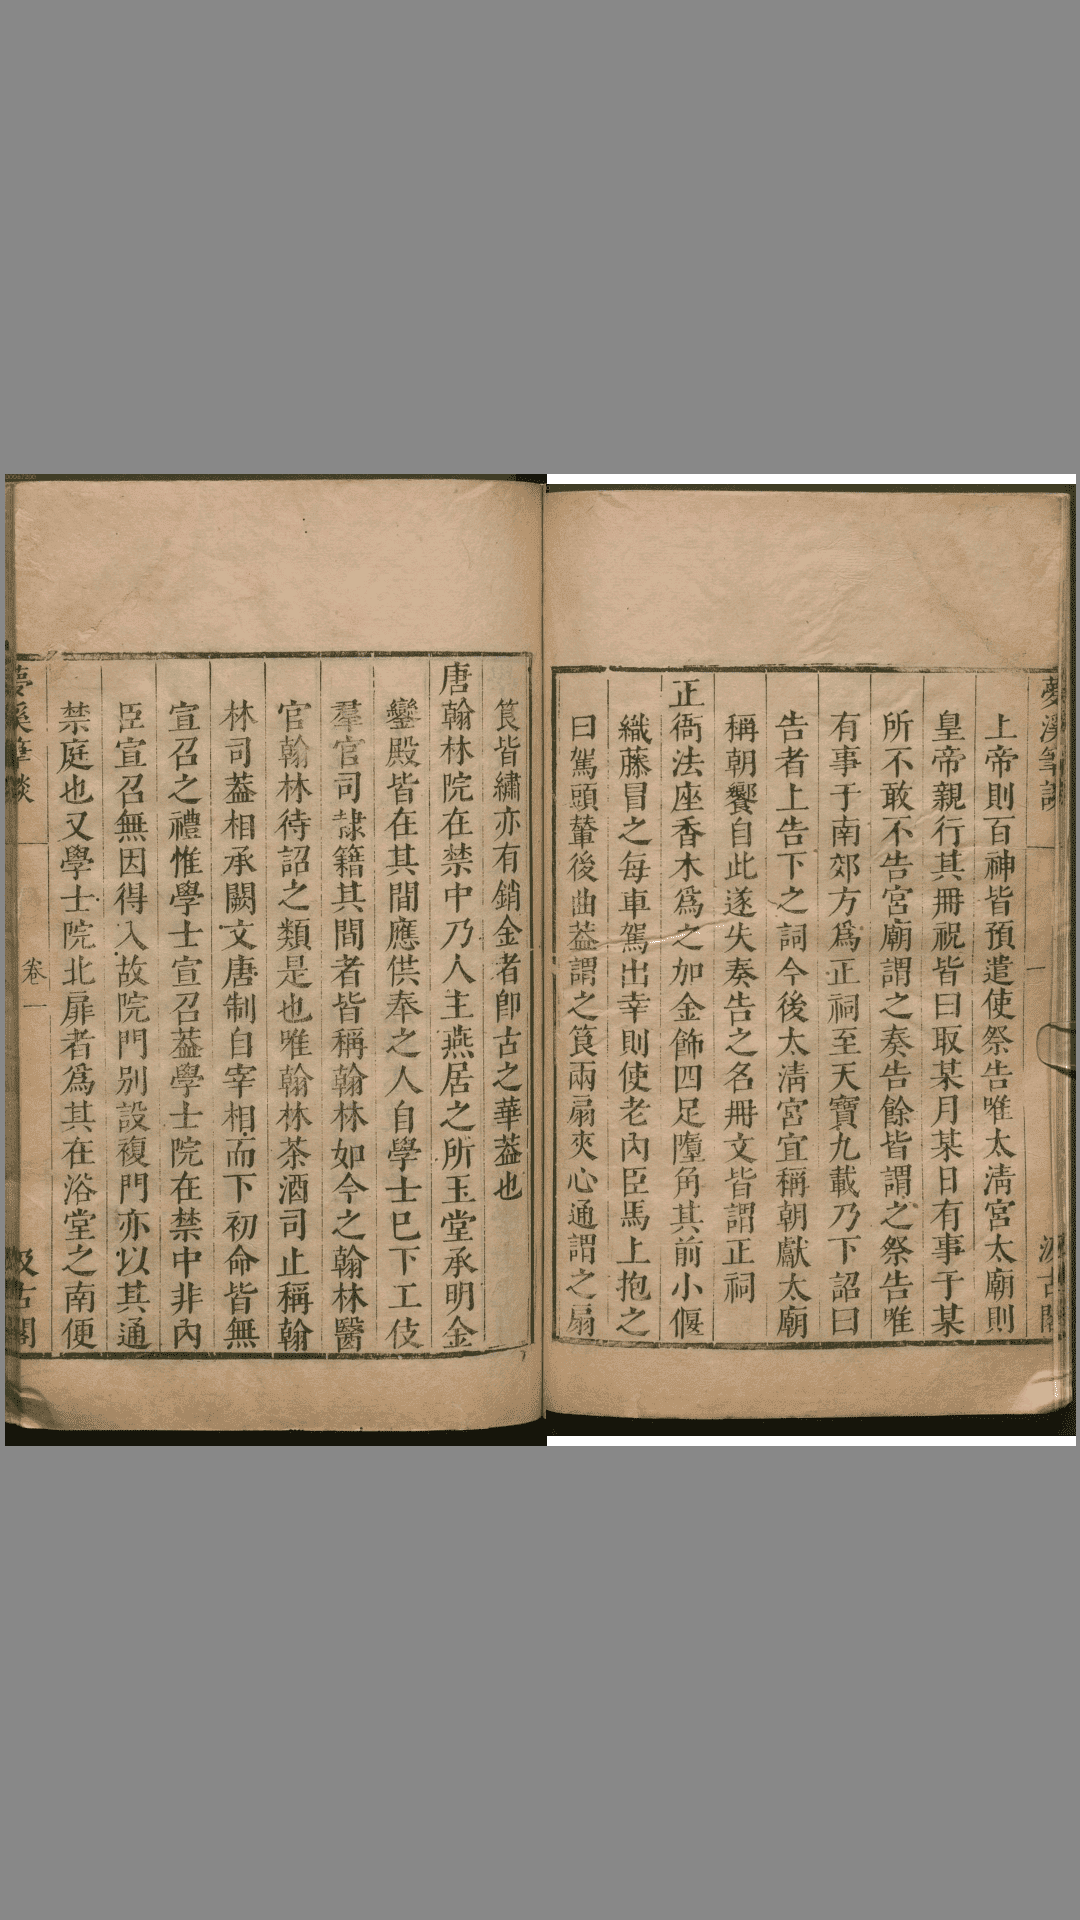 夢溪筆談 一 汲古閣
上帝則百神皆預遣使祭告唯太淸宮太廟則
皇帝親行其冊祝皆曰取某月某日有事于某
所不敢不告宮廟謂之奏告餘皆謂之祭告唯
有事于南郊方爲正祠至天寶九載乃下詔曰
告者上告下之詞今後太淸宮宜稱朝獻太廟
稱朝饗自此遂失奏告之名冊文皆謂正祠
正衙法座香木爲之加金飾四足墮角其前小偃
織藤冒之每車駕出幸則使老內臣馬上抱之
曰駕頭輦後曲葢謂之筤兩扇夾心通謂之扇
筤皆繡亦有銷金者卽古之華葢也
唐翰林院在禁中乃人主燕居之所玉堂承明金
鑾殿皆在其間應供奉之人自學士巳下工伎
羣官司隷籍其間者皆稱翰林如今之翰林醫
官翰林待詔之類是也唯翰林茶酒司止稱翰
林司葢相承闕文唐制自宰相而下初命皆無
宣召之禮惟學士宣召葢學士院在禁中非內
臣宣召無因得入故院門別設複門亦以其通
禁庭也又學士院北扉者爲其在浴堂之南便
夢溪筆談 卷一 汲古閣